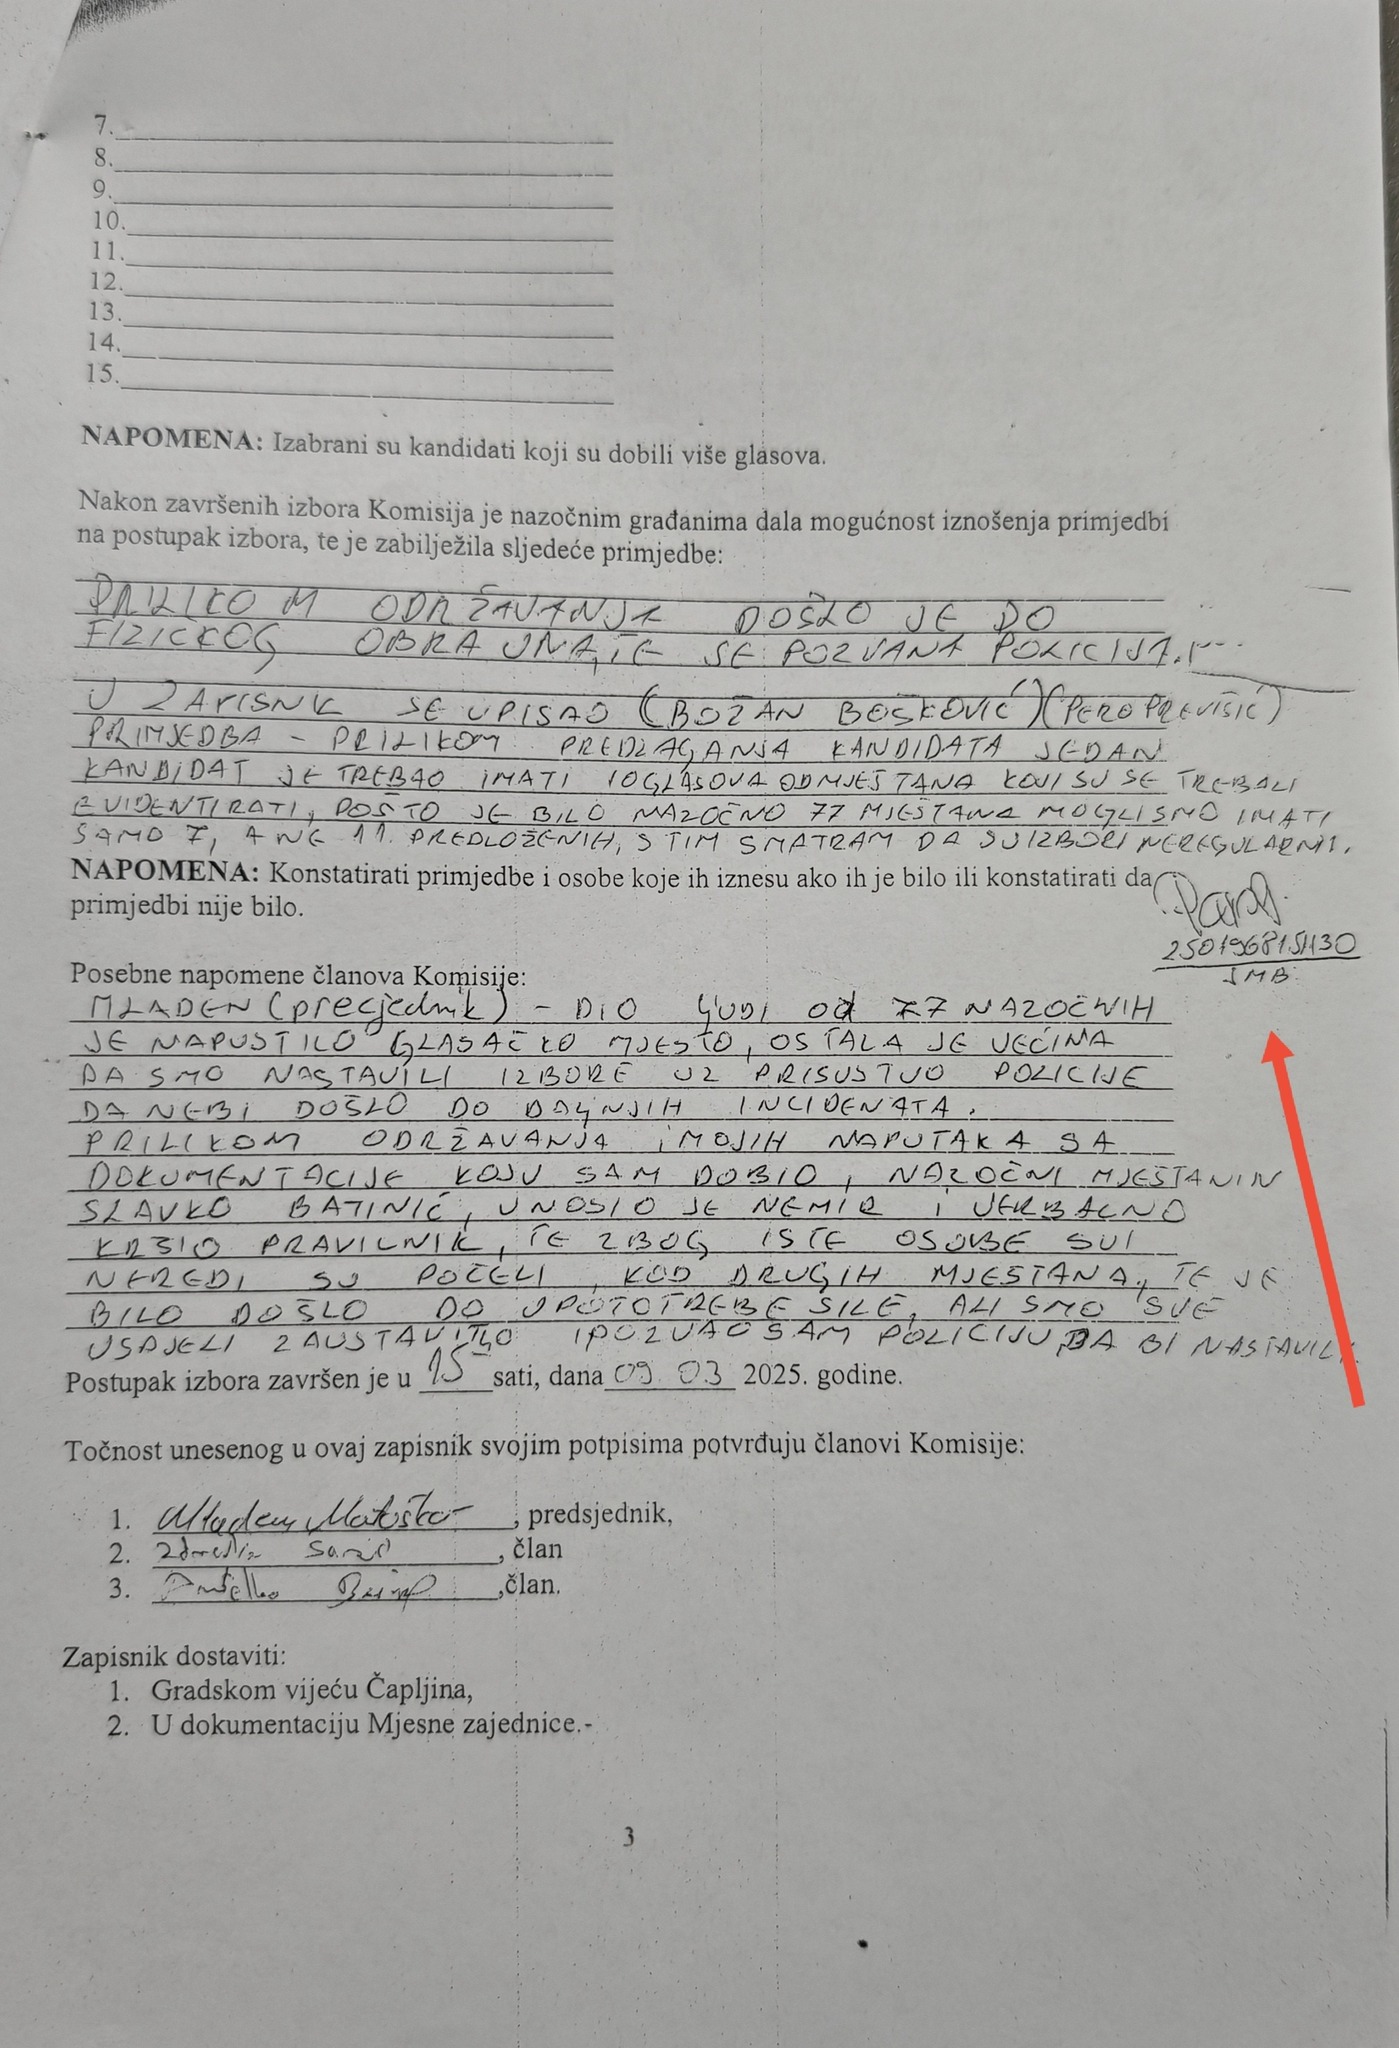 7.
8.
9.
10.
11.
12.
13.
14.
15.
NAPOMENA: Izabrani su kandidati koji su dobili više glasova.
Nakon završenih izbora Komisija je nazočnim građanima dala mogućnost iznošenja primjedbi
na postupak izbora, te je zabilježila sljedeće primjedbe:
PRILIKOM ODRŽAVANJA DOŠLO JE DO
FIZIČKOG OBRAČUNA, TE SE POZVANA POLICIJA.
U ZAPISNIK SE UPISAO (BOŽAN BOŠKOVIĆ) (PERO PREVIŠIĆ)
PRIMJEDBA - PRILIKOM PREDLAGANJA KANDIDATA JEDAN
KANDIDAT JE TREBAO IMATI 10 GLASOVA OD MJEŠTANA KOJI SU SE TREBALI
EVIDENTIRATI, POŠTO JE BILO NAZOČNO 77 MJEŠTANA MOGLI SMO IMATI
SAMO 7, A NE 11. PREDLOŽENIH, S TIM SMATRAM DA SU IZBORI NEREGULARNI.
NAPOMENA: Konstatirati primjedbe i osobe koje ih iznesu ako ih je bilo ili konstatirati da
primjedbi nije bilo.
JMB
Posebne napomene članova Komisije:
MLADEN (precjednik) - DIO LJUDI od 77 NAZOČNIH
JE NAPUSTILO GLASAČKO MJESTO, OSTALA JE VEĆINA
DA SMO NASTAVILI IZBORE UZ PRISUSTVO POLICIJE
DA NEBI DOŠLO DO DALJNJIH INCIDENATA.
PRILIKOM ODRŽAVANJA I MOJIH NAPUTAKA SA
DOKUMENTACIJE KOJU SAM DOBIO, NAZOČNI MJEŠTANIN
SLAVKO BATINIĆ, UNOSIO JE NEMIR I VERBALNO
KRŠIO PRAVILNIK, TE ZBOG ISTE OSOBE SVI
NEREDI SU POČELI, KOD DRUGIH MJEŠTANA, TE JE
BILO DOŠLO DO UPOTOTREBE SILE, ALI SMO SVE
USPJELI ZAUSTAVITI I POZVAO SAM POLICIJU DA BI NASTAVILI
Postupak izbora završen je u 15 sati, dana 09.03 2025. godine.
Točnost unesenog u ovaj zapisnik svojim potpisima potvrđuju članovi Komisije:
1. Mladen Matoško, predsjednik,
2. , član
3. , član.
Zapisnik dostaviti:
1. Gradskom vijeću Čapljina,
2. U dokumentaciju Mjesne zajednice.-
3